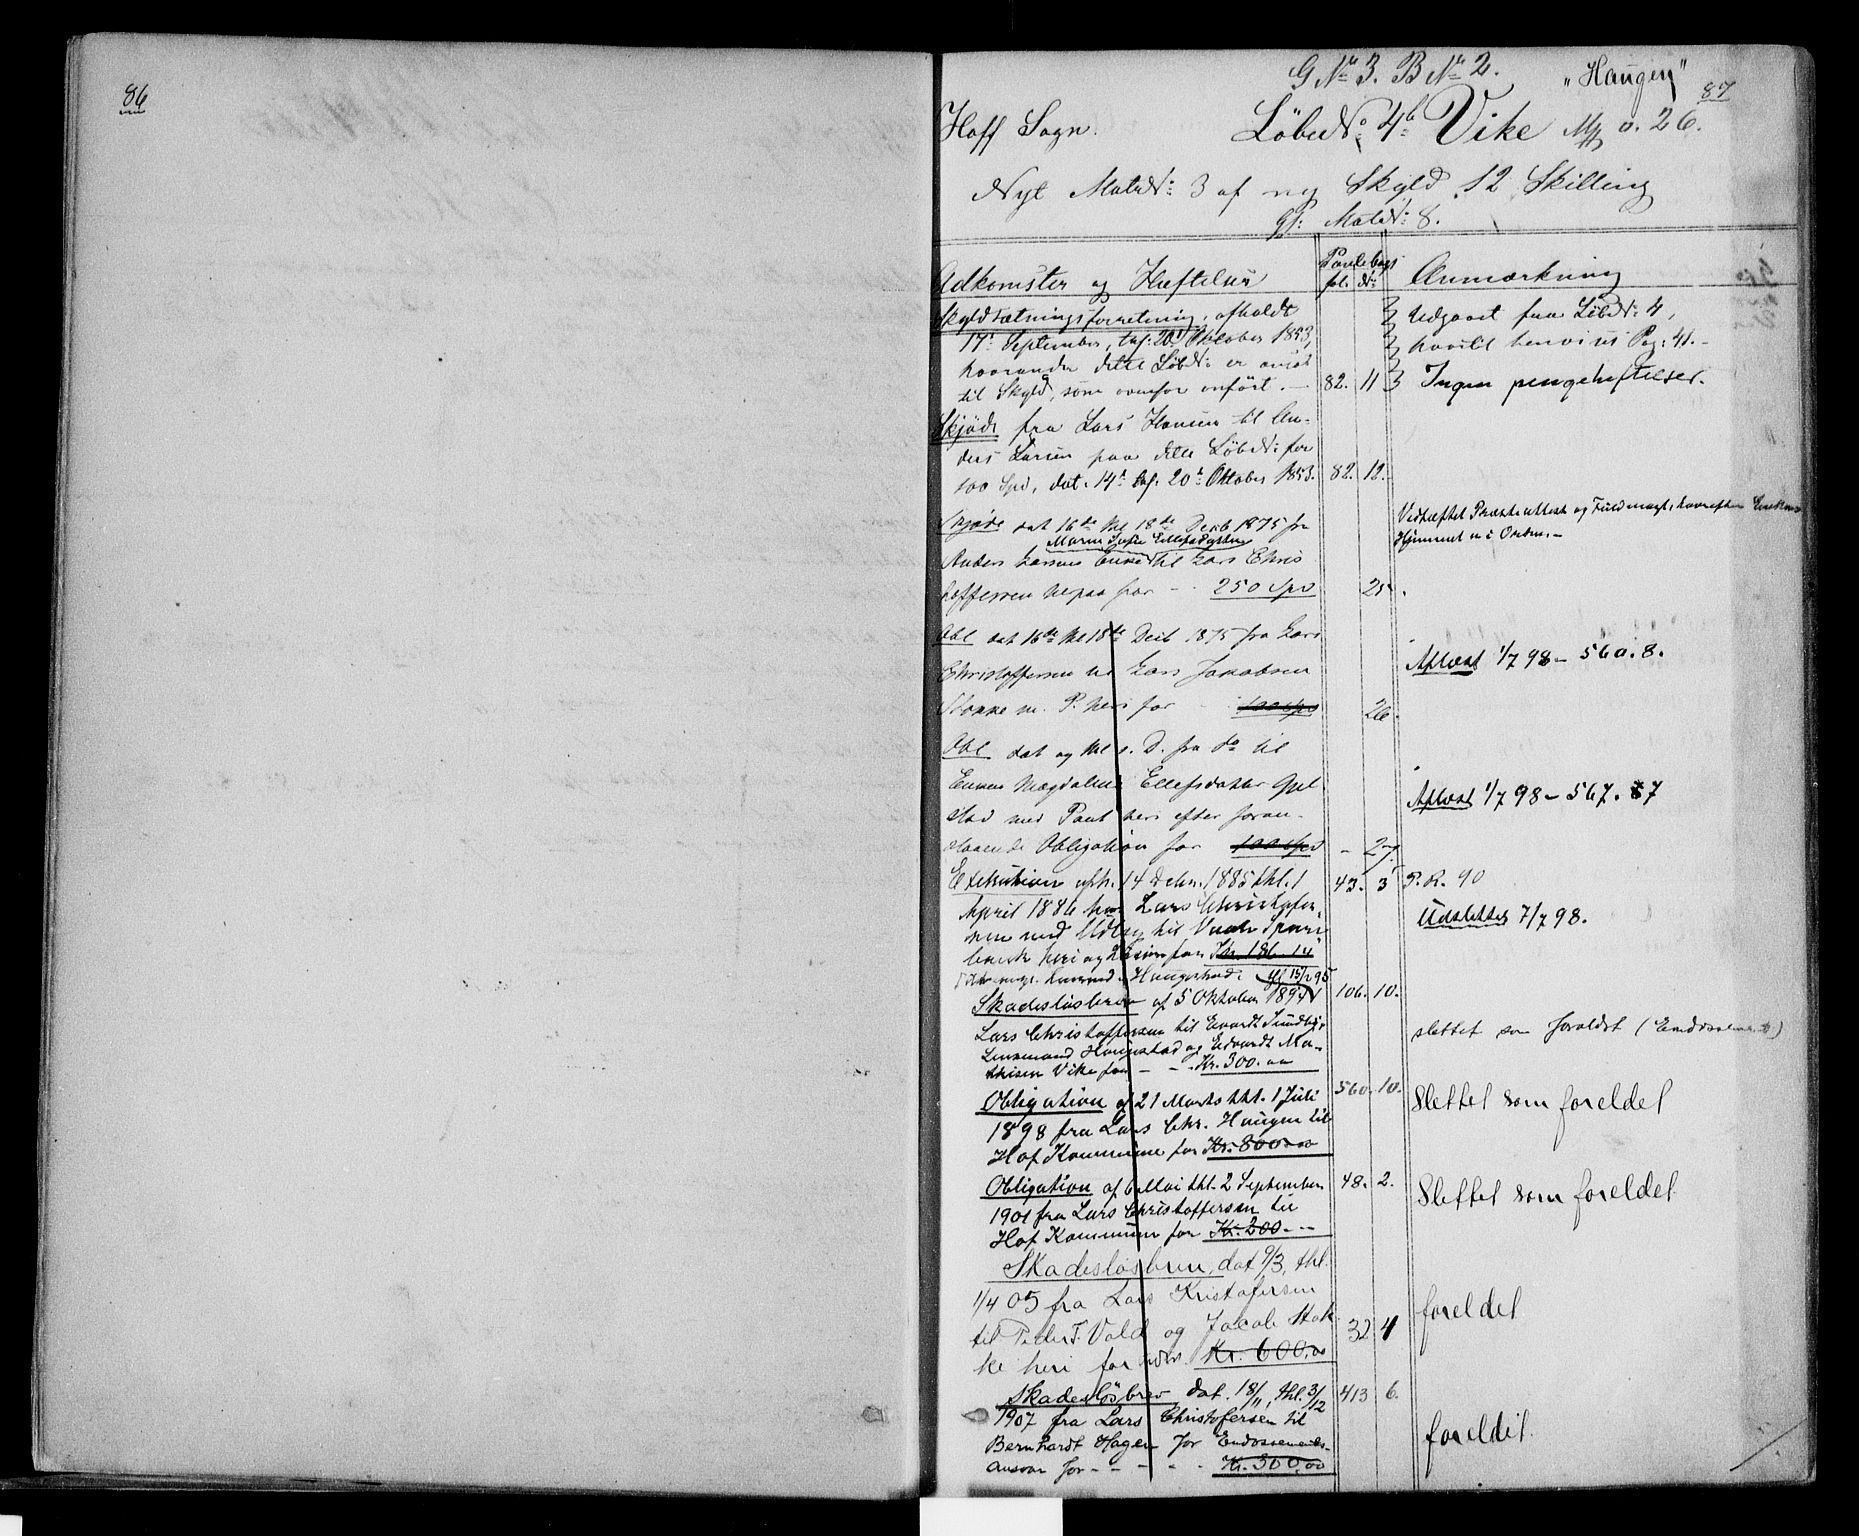 86
G No 3. B No 2.
"Haugen"
87
Hoff Sogn.
LöbeNo: 4b Vike Mk 0.26.
Nyt MatrN: 3 af ny Skyld 12 Skilling
gl: MatrN: 8.
Adkomster og Hæftelser
Pantebogs
fol. No:
Anmærkning
Skyldsætningsforretning, afholdt
17: September, tgl: 20: Oktober 1853,
hvorunder dette LöbN: er ansat
til Skyld, som ovenfor anfört. —
82. 11
Udgaaet fra LöbN: 4,
hvortil henvises Pag: 41. -
Ingen pengeheftelser.
Skjöde fra Lars Hansen til An-
ders Larsen paa dette LöbN: for
100 Spd, dat. 14: tgl. 20: Oktober 1853.
82. 12.
Skjøde dat 16de thl 18de Decb 1875 fra
Maren Sofie Ellefsdatter
Anders Larsens Enke til Lars Chris
toffersen herpaa for - 250 Spd
25.
Vedhæftet Præsteattest og Fuldmagt, hvorefter Enkens
Hjemmel er i Orden. -
Obl dat 16de thl 18de Decb 1875 fra Lars
Christoffersen til Lars Jakobsen
Stokke m. P. heri for - 100 Spd
26.
Aflæst 1/7 98 - 560. 8.
Obl dat og thl s. D. fra do til
Enken Magdalene Ellefsdatter Gjel
stad med Pant heri efter foran-
staaende Obligation for 100 Spd
- 27.
Aflæst 1/7 98 - 567. 7
Exekution afh. 14 Debr. 1885 thl. 1
April 1886 hos Lars Christofer-
sen med Udlæg til Vaale Spare
bank heri og Løsøre for Kr. 186. 14
43. 3
P. R. 90
Udslettet 7/7 98.
Skadesløsbrev af 5 Oktober 1894
15/1 95
Lars Christoffersen til Edvardt Sundby,
Lensmand Haugestad og Edvardt Ma-
thisen Vike for - - Kr. 300. 00
106. 10.
slettet som foreldet
Obligation af 21 Marts thl. 1 Juli
1898 fra Lars Chr. Haugen til
Hof Kommune for Kr. 800.00
560. 10.
Slettet som foreldet
Obligation af 6 Mai thl. 2 September
1901 fra Lars Christoffersen til
Hof Kommune for Kr. 200. - -
48. 2.
Slettet som foreldet
Skadesløsbrev, dat 9/3, thl.
1/4 05 fra Lars Kristofersen
til Peder T. Vold og Jacob Stok
ke heri for Kr. 600,00
32 4
foreldet
Skadesløsbrev dat. 18/11, thl. 3/12
1907 fra Lars Christofersen til
Bernhardt Hagen for Endossements-
ansvar for - - - - Kr. 500,00
413 6.
foreldet